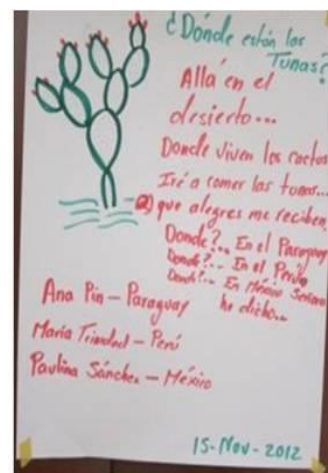 ¿Dónde están las
Tunas?
Allá en el
desierto...
Donde viven los cactus
Iré a comer las tunas...
que alegres me reciben.
Donde?... En el Paraguay
Donde?... En el Perú
Donde?... En México Señores
he dicho...
Ana Pin - Paraguay
María Trinidad - Perú
Paulina Sánchez - México
15-Nov-2012